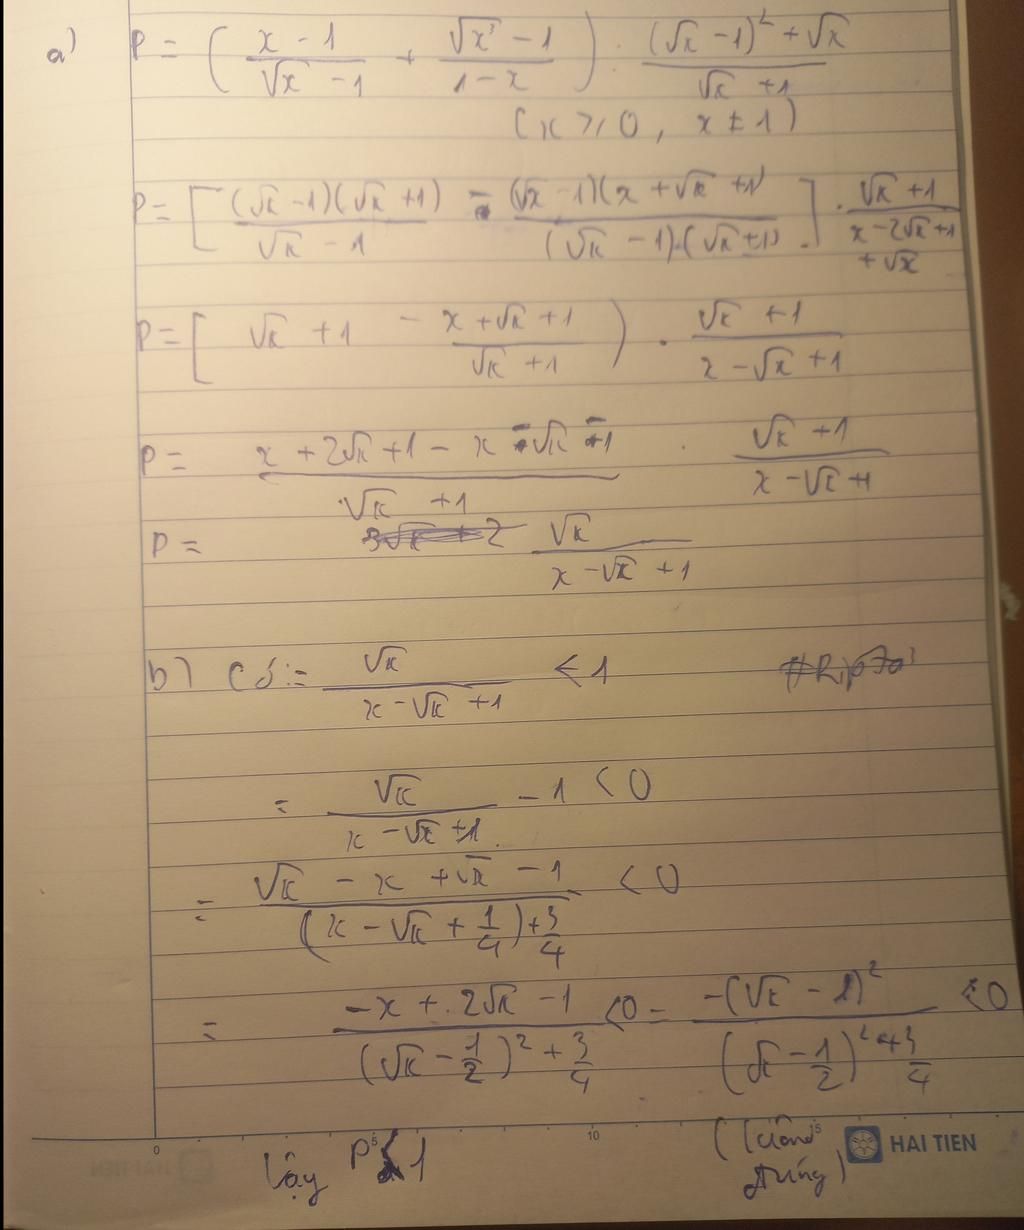 a) P = ( (x - 1)/(√x - 1) + (√x³ - 1)/(1 - x) ) . ((√x - 1)² + √x)/(√x + 1)
(x ≥ 0, x ≠ 1)
P = [ (√x - 1)(√x + 1)/(√x - 1) - (√x - 1)(x + √x + 1)/((√x - 1).(√x + 1)) ] . (√x + 1)/(x - 2√x + 1 + √x)
P = [ √x + 1 - (x + √x + 1)/(√x + 1) ) . (√x + 1)/(x - √x + 1)
P = (x + 2√x + 1 - x - √x - 1)/(√x + 1) . (√x + 1)/(x - √x + 1)
P = √x/(x - √x + 1)
b) Có: √x/(x - √x + 1) < 1
= √x/(x - √x + 1) - 1 < 0
= (√x - x + √x - 1)/((x - √x + 1/4) + 3/4) < 0
= (-x + 2√x - 1)/((√x - 1/2)² + 3/4) < 0 = -(√x - 1)²/((√x - 1/2)² + 3/4) < 0
0 5 10 15 HAI TIEN
Vậy P < 1 (luôn đúng)